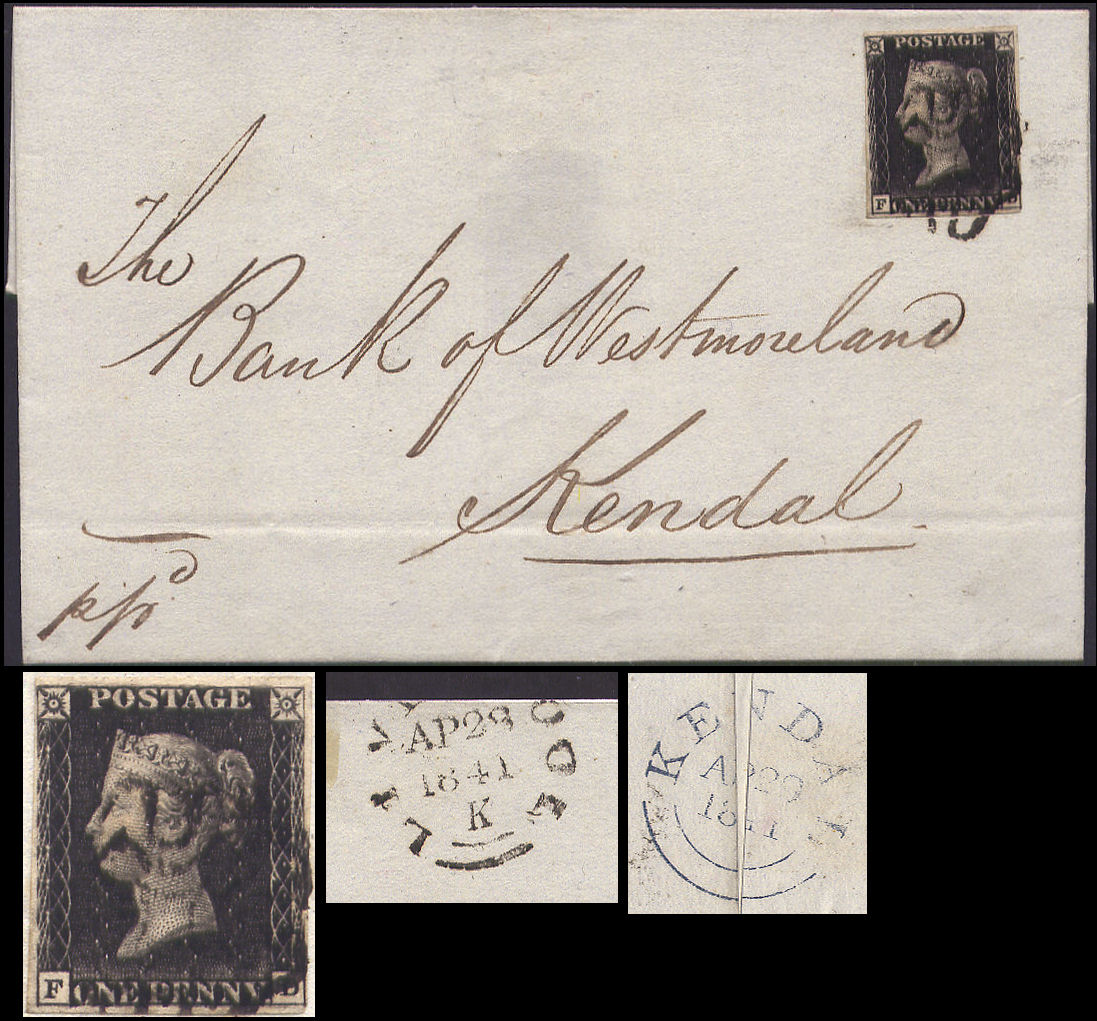 POSTAGE
F ONE PENNY
The
Bank of Westmoreland
Kendal.
p/p.d
POSTAGE
F ONE PENNY D
AP 28
1841
K
KENDAL
AP 29
1841